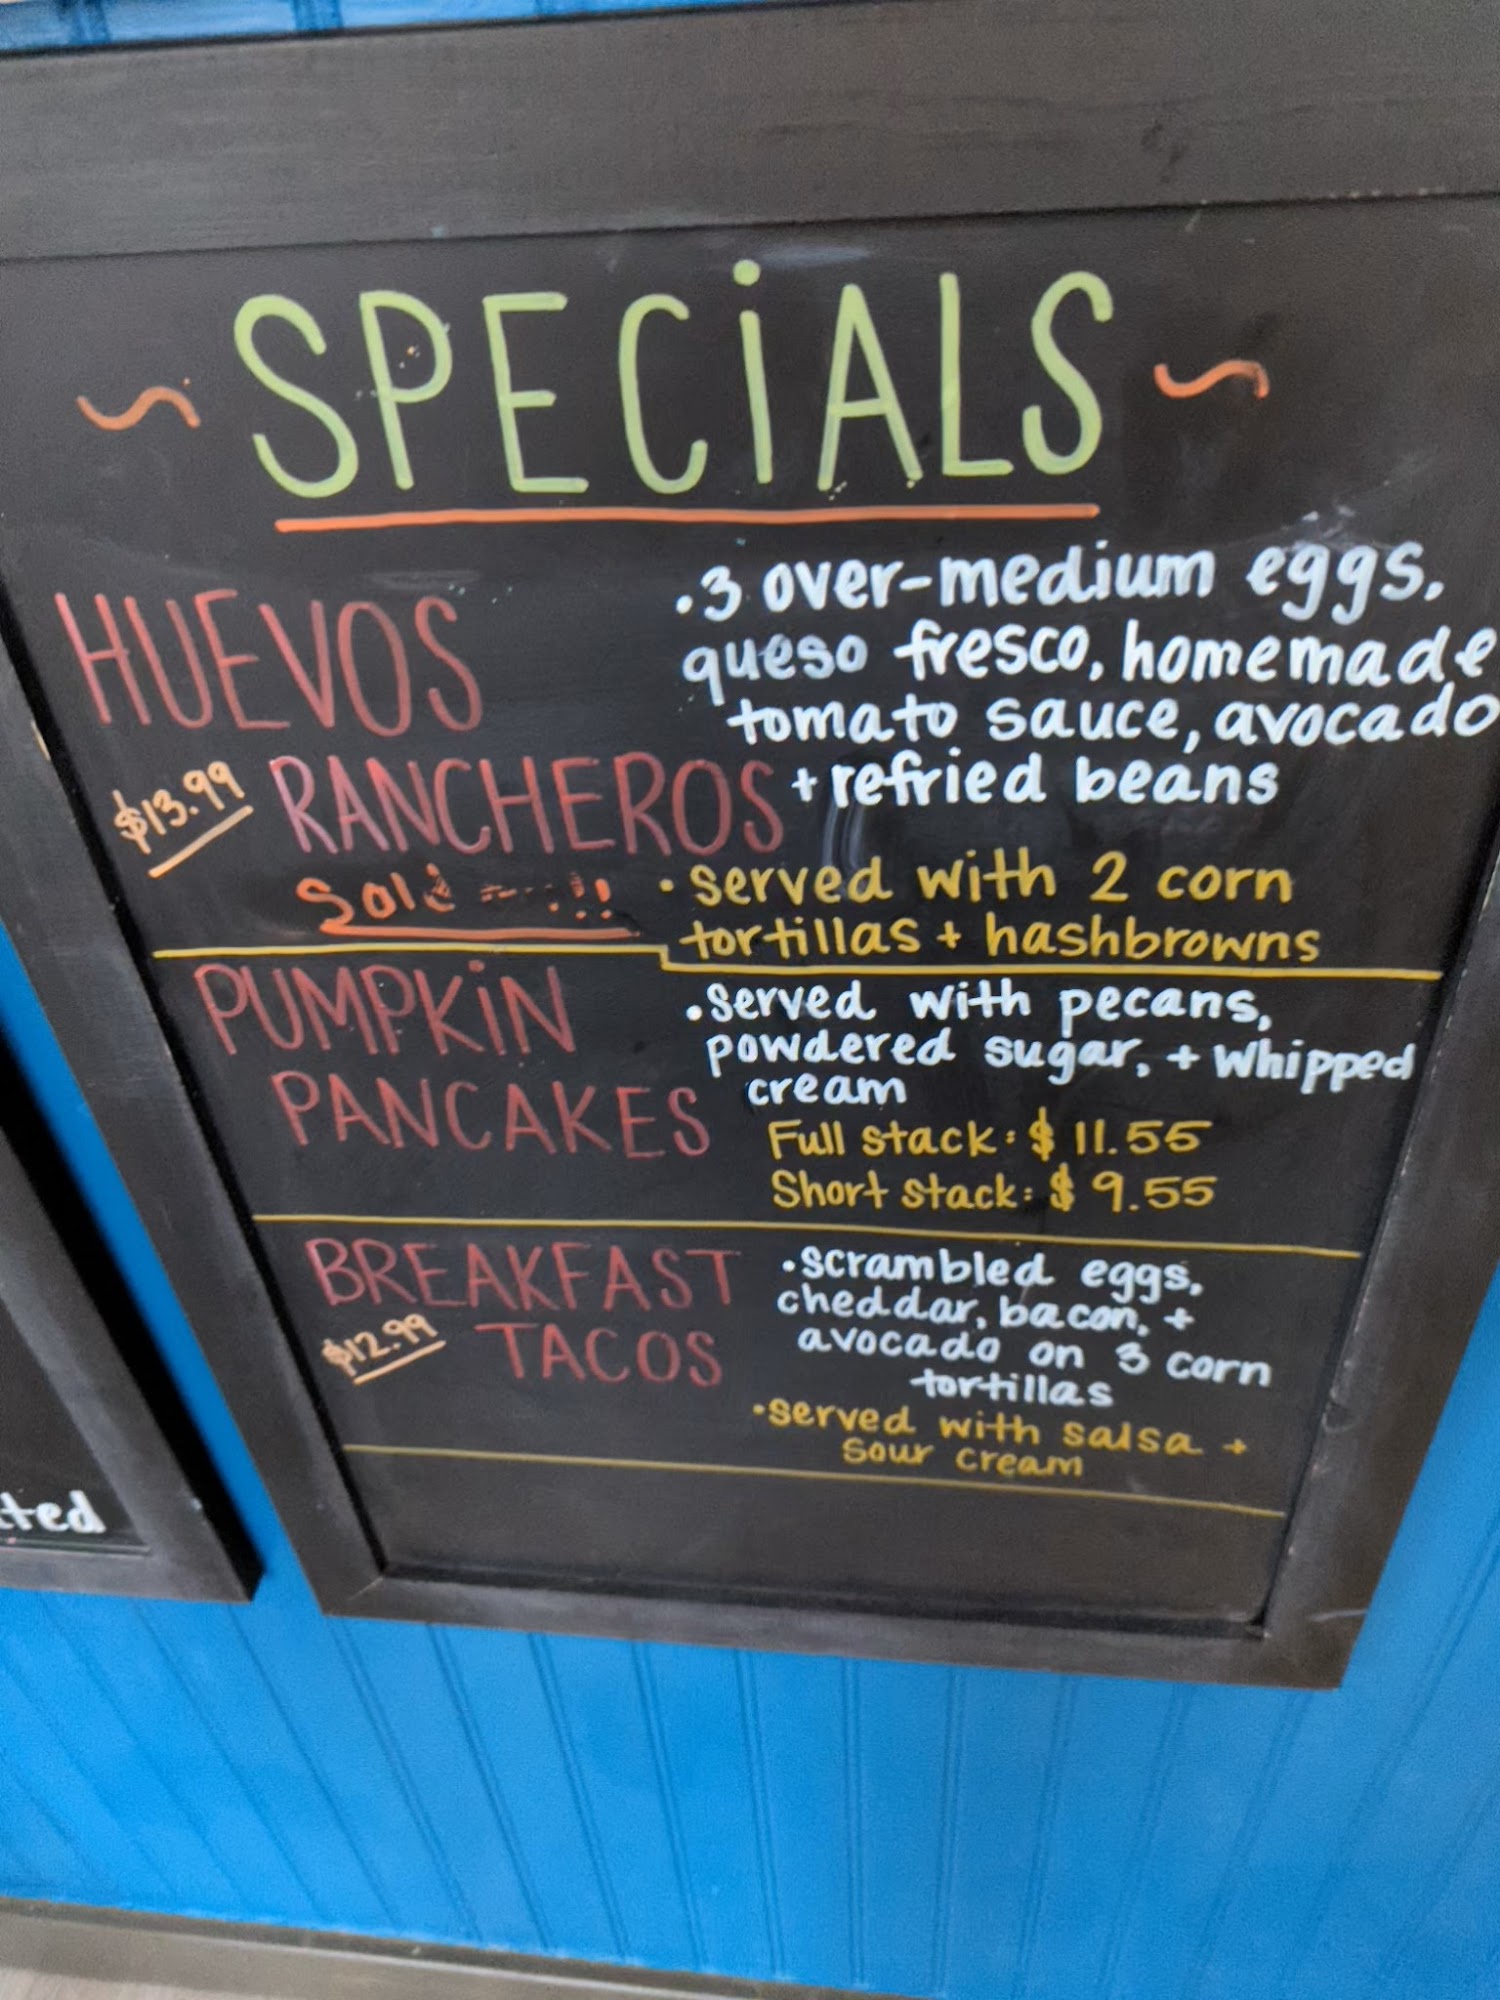 ~ SPECiALS ~
HUEVOS
$13.99 RANCHEROS
Sold !!
• 3 over-medium eggs,
queso fresco, homemade
tomato sauce, avocado
+ refried beans
• served with 2 corn
tortillas + hashbrowns
PUMPKiN
PANCAKES
• served with pecans,
powdered sugar, + whipped
cream
Full stack: $ 11.55
Short stack: $ 9.55
BREAKFAST
$12.99 TACOS
• scrambled eggs,
cheddar, bacon, +
avocado on 3 corn
tortillas
• served with salsa +
sour cream